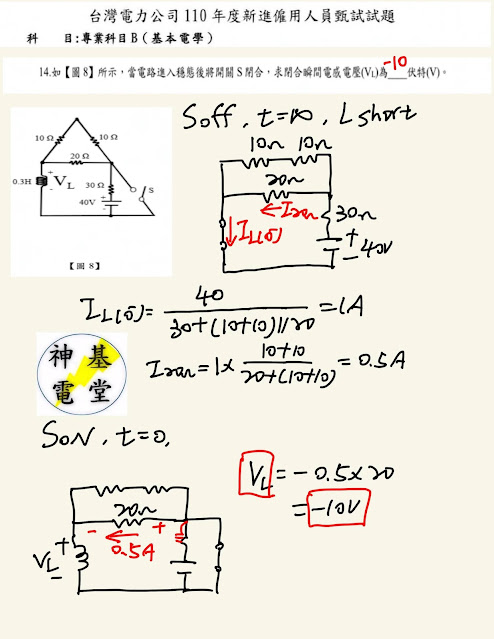 台灣電力公司 110 年度新進僱用人員甄試試題
科 目:專業科目B(基本電學)
-10
14.如【圖 8】所示,當電路進入穩態後將開關 S 閉合,求閉合瞬間電感電壓(VL)為___伏特(V)。
Soff, t=∞, L short
10Ω 10Ω
20Ω
I20Ω
30Ω
IL(0-)
+
-
40V
10 Ω
10 Ω
20 Ω
0.3H
+
VL
-
30 Ω
S
40V
+
-
【圖 8】
IL(0-)= 40 / 30+(10+10)//20 =1A
I20Ω=1× 10+10 / 20+(10+10) = 0.5A
神 基
電 堂
SoN, t=0,
VL = -0.5×20
= -10V
20Ω
- +
0.5A
VL
+
-